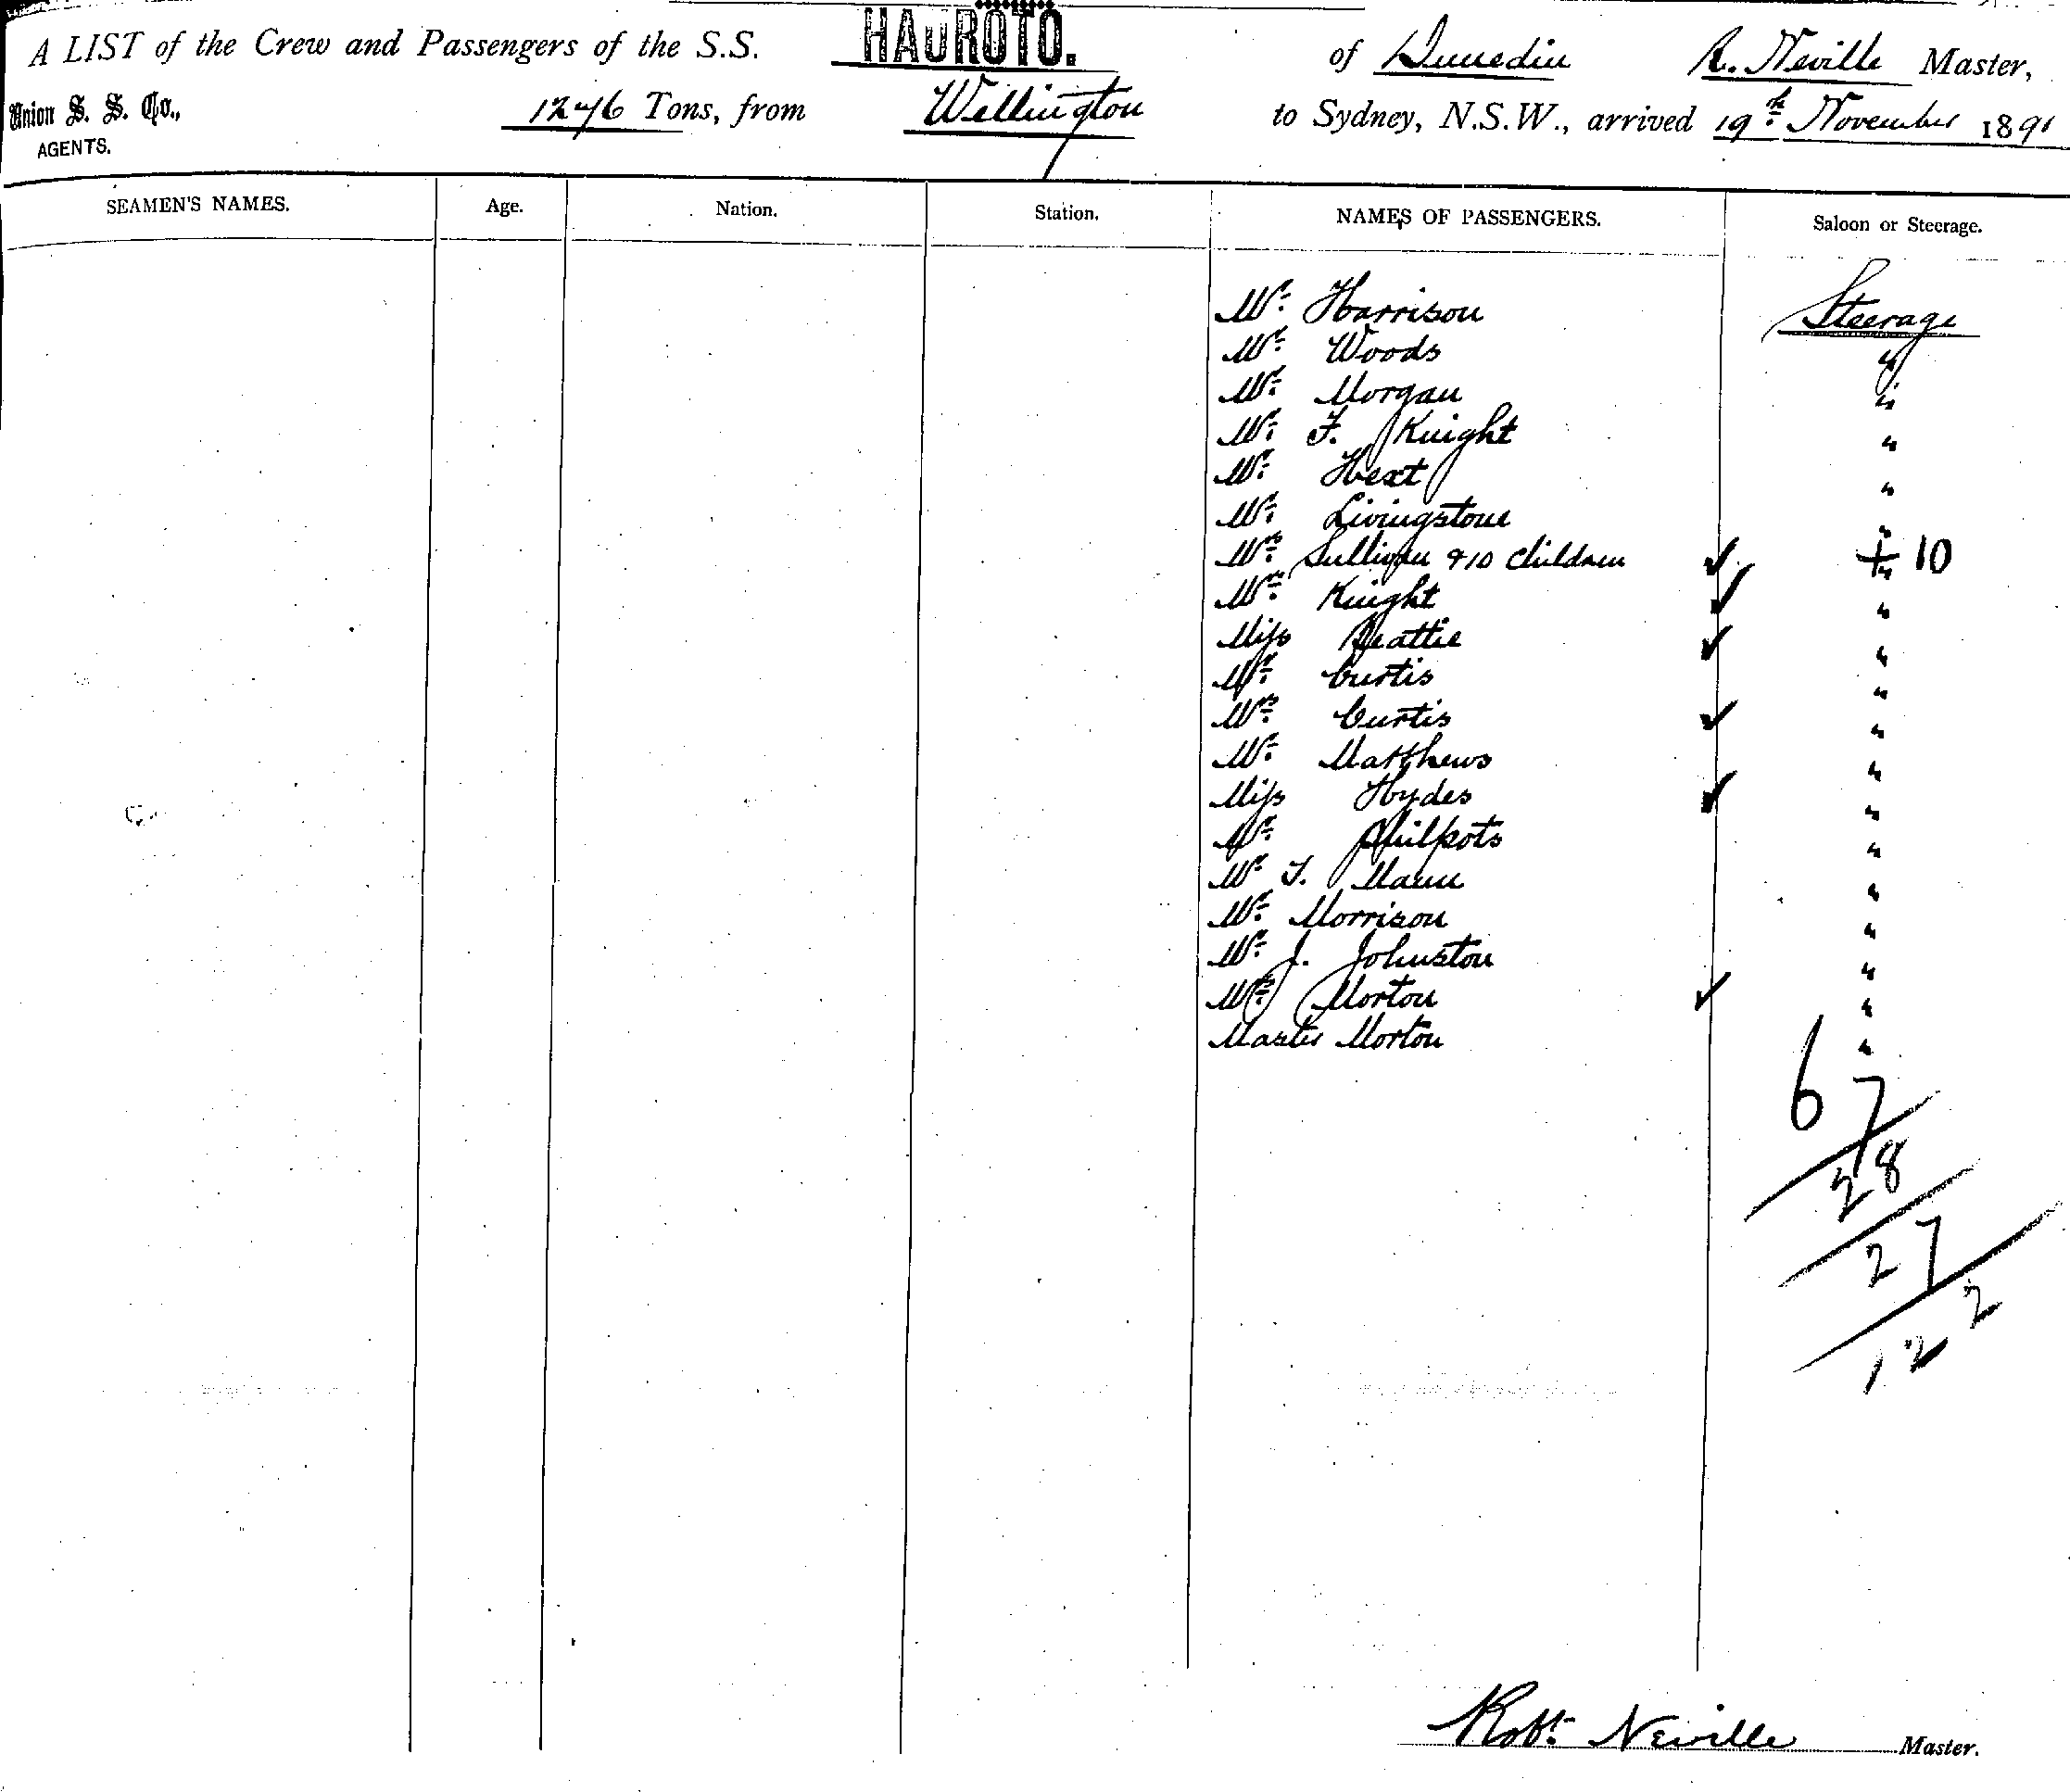 A LIST of the Crew and Passengers of the S.S. HAUROTO. of Dunedin R. Neville Master,
Union S. S. Co., 1276 Tons, from Wellington to Sydney, N.S.W., arrived 19th November 1891
AGENTS.
SEAMEN'S NAMES. Age. Nation. Station. NAMES OF PASSENGERS. Saloon or Steerage.
Mr. Harrison Steerage
Mr. Woods "
Mr. Morgan "
Mr. F. Knight "
Mr. Hext "
Mr. Livingstone "
Mrs. Sullivan & 10 Children ✓ " + 10
Mrs. Knight ✓ "
Miss Beattie ✓ "
Mr. Curtis "
Mrs. Curtis ✓ "
Mr. Matthews "
Miss Hydes ✓ "
Mr. Philpots "
Mr. F. Mann "
Mr. Morrison "
Mr. J. Johnston "
Mrs. Morton ✓ "
Master Morton "
67
28
27
2
12
Robt. Neville Master.